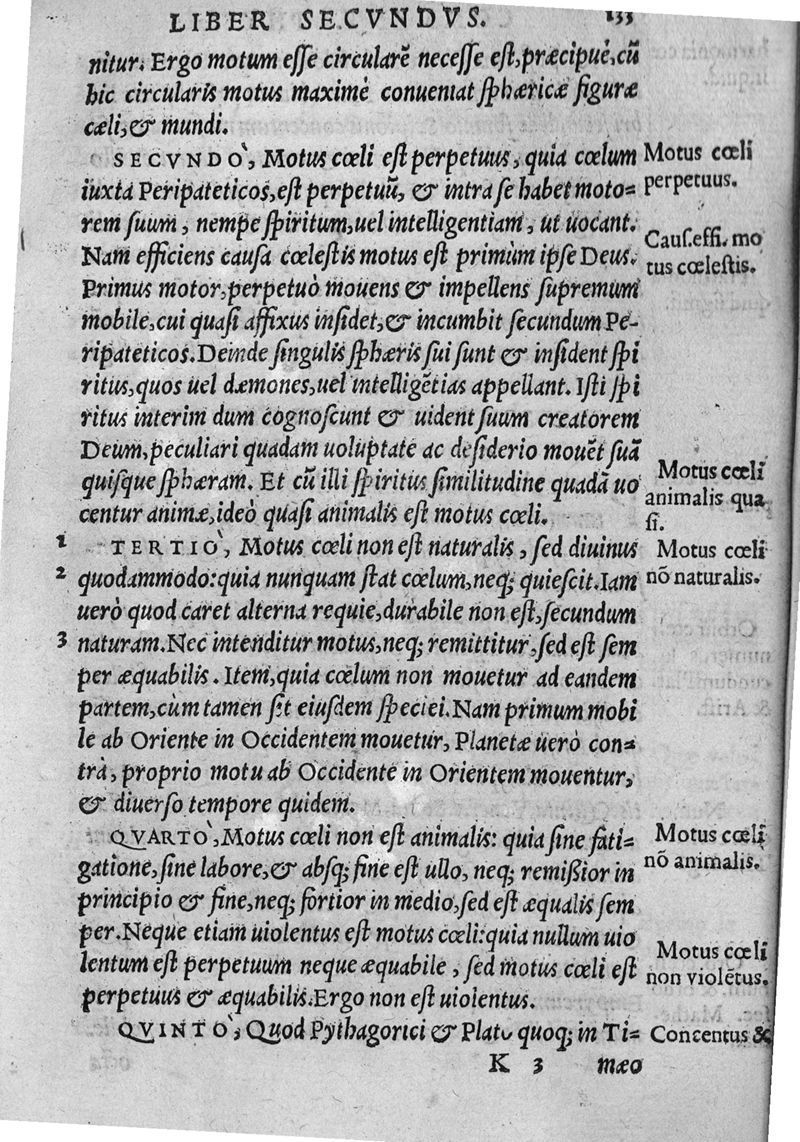 LIBER SECVNDVS. 133
nitur. Ergo motum esse circularē necesse est, præcipuè, cū
hic circularis motus maximè conueniat sphæricæ figuræ
cæli, & mundi.
SECVNDÒ, Motus cœli est perpetuus, quia cœlum
iuxta Peripateticos, est perpetuū, & intra se habet moto=
rem suum, nempe spiritum, uel intelligentiam, ut uocant.
Nam efficiens causa cœlestis motus est primùm ipse Deus.
Primus motor, perpetuò mouens & impellens supremum
mobile, cui quasi affixus insidet, & incumbit secundum Pe-
ripateticos. Deinde singulis sphæris sui sunt & insident spi
ritus, quos uel dæmones, uel intelligētias appellant. Isti spi
ritus interim dum cognoscunt & uident suum creatorem
Deum, peculiari quadam uoluptate ac desiderio mouēt suā
quisque sphæram. Et cū illi spiritus similitudine quadā uo
centur animæ, ideò quasi animalis est motus cœli.
1 TERTIÒ, Motus cœli non est naturalis, sed diuinus
2 quodammodo: quia nunquam stat cœlum, neq; quiescit. Iam
uerò quod caret alterna requie, durabile non est, secundum
3 naturam. Nec intenditur motus, neq; remittitur, sed est sem
per æquabilis. Item, quia cœlum non mouetur ad eandem
partem, cùm tamen sit eiusdem speciei. Nam primum mobi
le ab Oriente in Occidentem mouetur, Planetæ uerò con=
trà, proprio motu ab Occidente in Orientem mouentur,
& diuerso tempore quidem.
QVARTÒ, Motus cœli non est animalis: quia sine fati=
gatione, sine labore, & absq; fine est ullo, neq; remißior in
principio & fine, neq; fortior in medio, sed est æqualis sem
per. Neque etiam uiolentus est motus cœli: quia nullum uio
lentum est perpetuum neque æquabile, sed motus cœli est
perpetuus & æquabilis. Ergo non est uiolentus.
QVINTÒ, Quod Pythagorici & Plato quoq; in Ti=
K 3 mæo
Motus cœli
perpetuus.
Caus. effi. mo
tus cœlestis.
Motus cœli
animalis qua
si.
Motus cœli
nō naturalis.
Motus cœli
nō animalis.
Motus cœli
non violētus.
Concentus &c